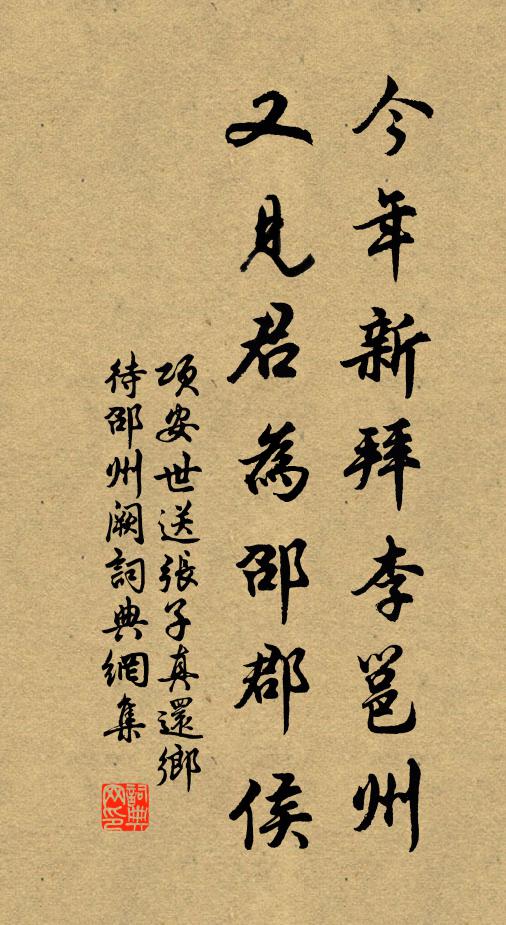 今年新拜李邕州
又見君為邵郡侯
項安世送張子真還鄉
待邵州闕詞典網集
詞典网印